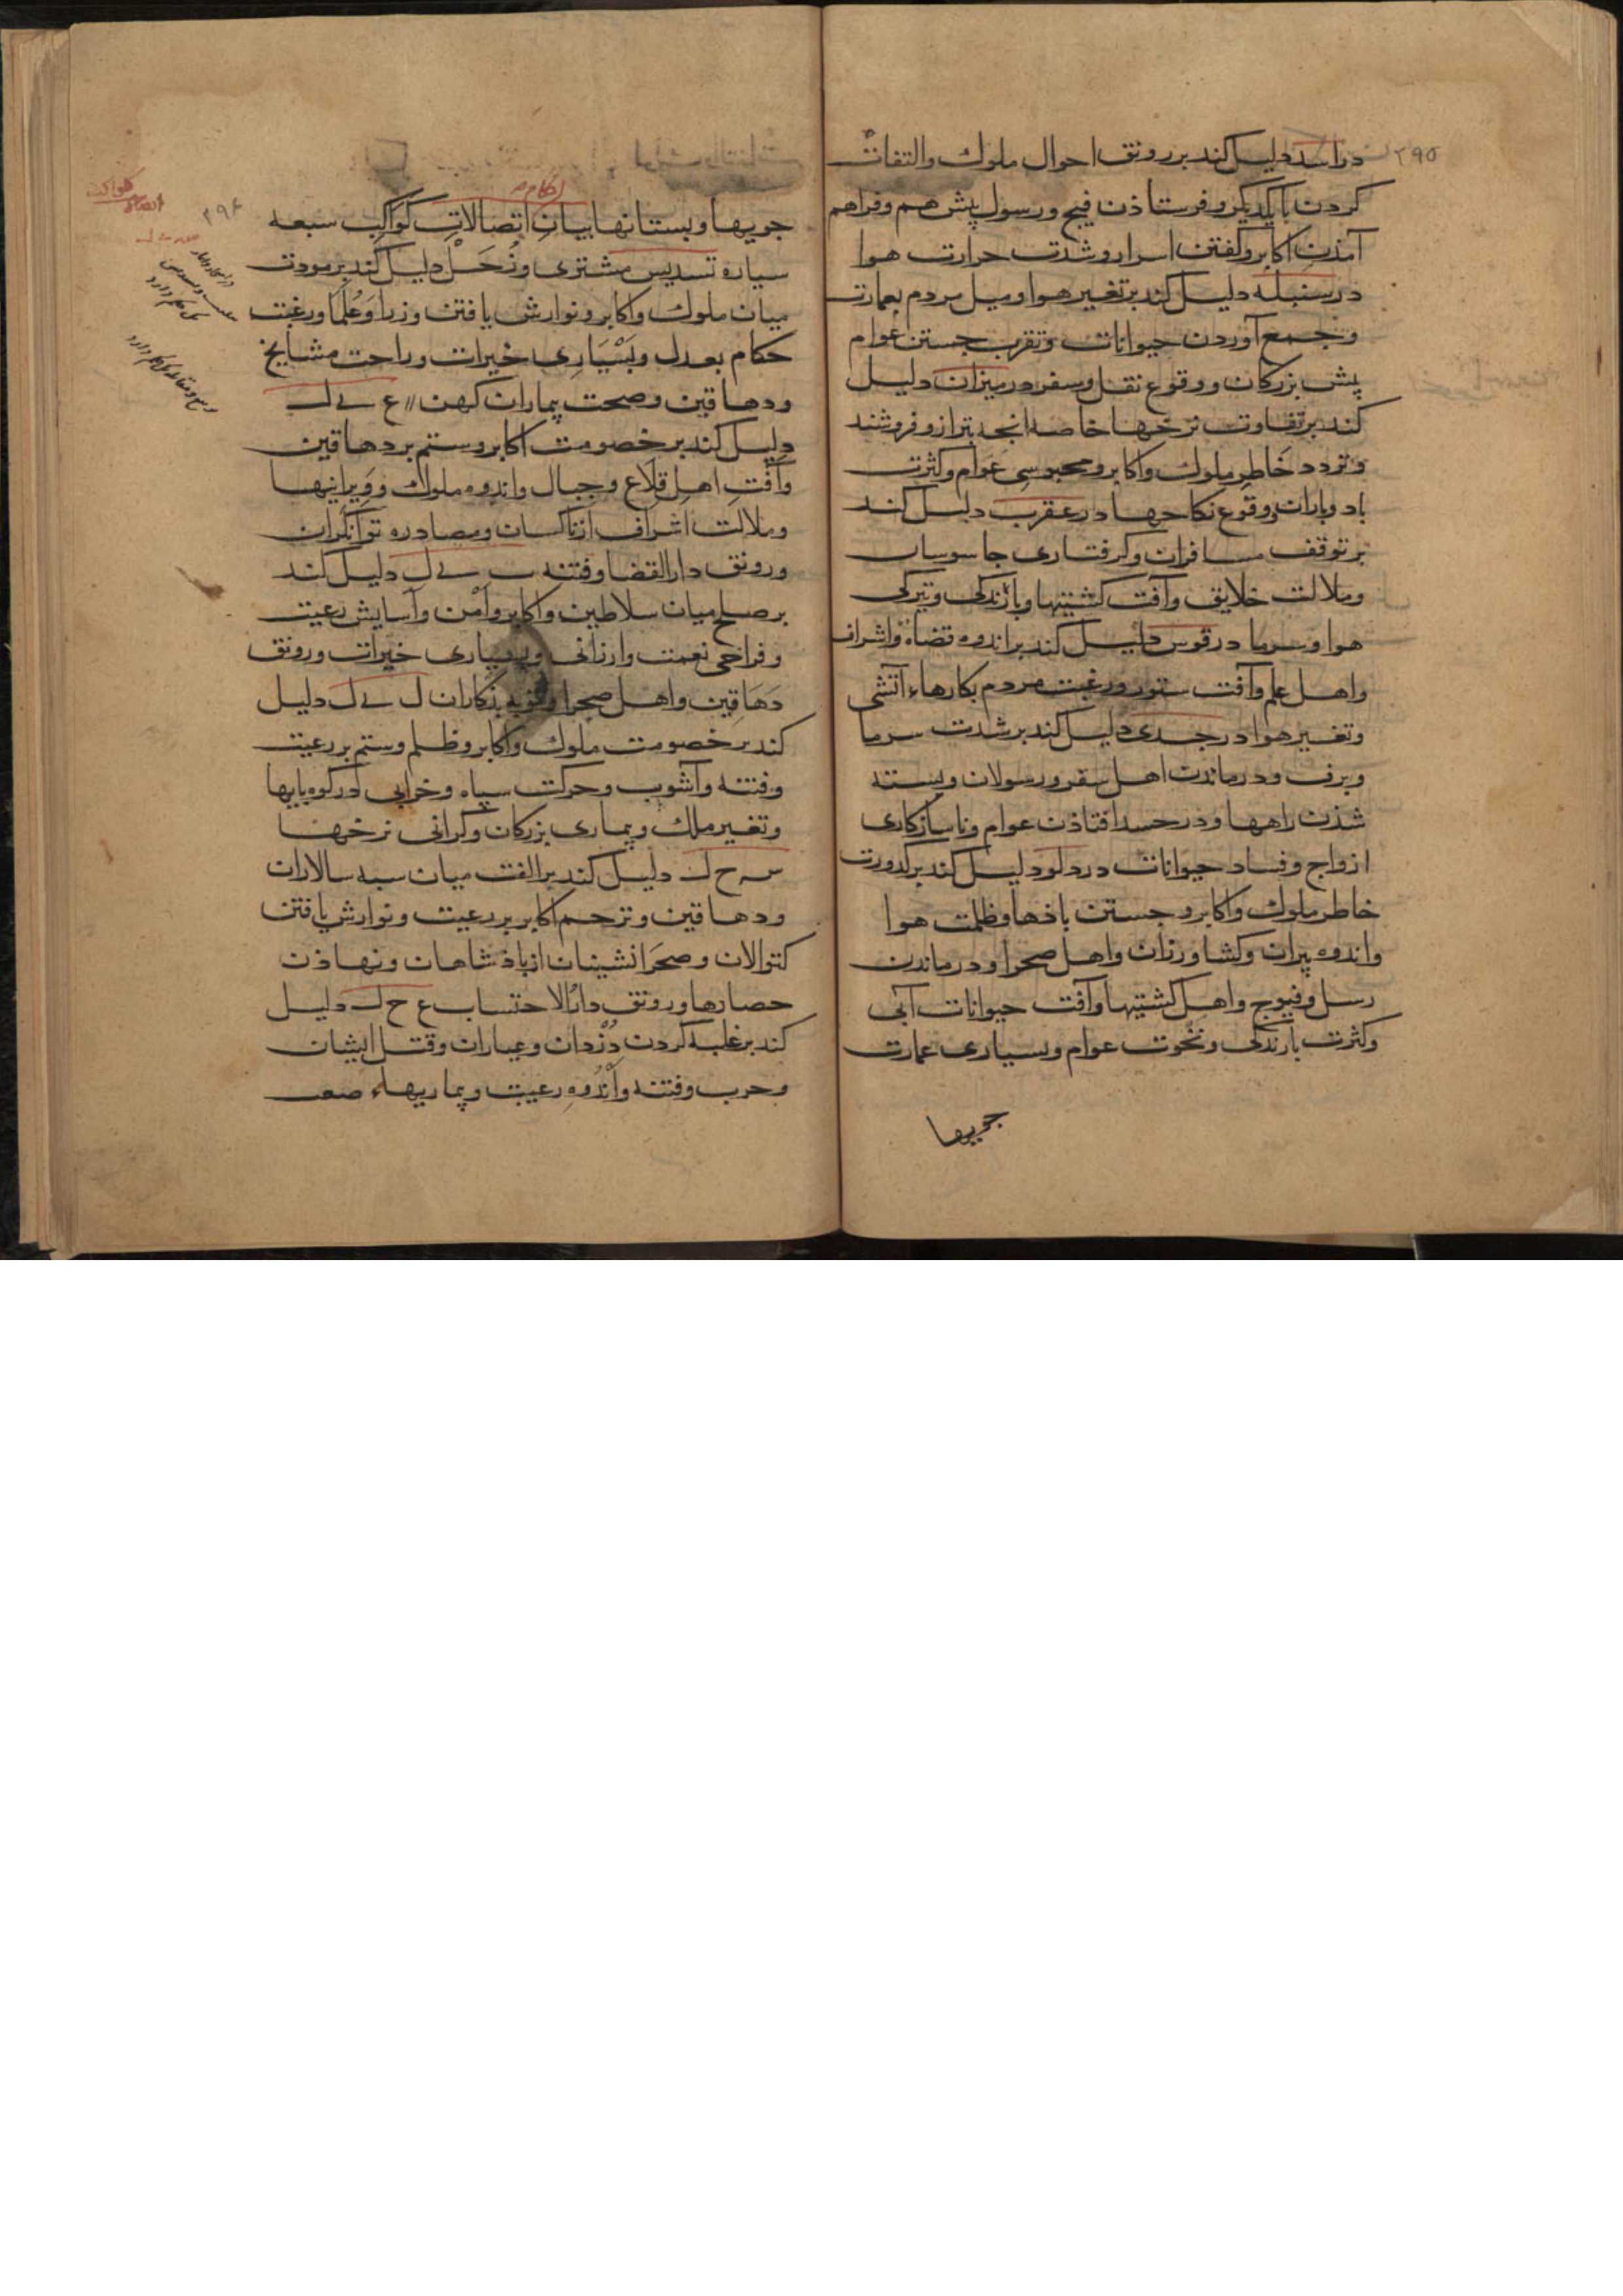 ۲۹۵
در اسد دلیل کند بر رونق احوال ملوک والتفات
کردن با یکدیکر و فرستاذن فیج ورسول پیش هم وفراهم
آمذن اکابر وکفتن اسرار و شدت حرارت هوا
در سنبله دلیل کند بر تغییر هوا ومیل مردم بعمارت
وجمع آوردن حیوانات وتقرب جستن عوام
پیش بزرکان ووقوع نقل وسفر در میزان دلیل
کند بر تفاوت نرخها خاصه انجه بترازو فروشند
وتردد خاطر ملوک واکابر ومحبوسی عوام وکثرت
باد وباران ووقوع نکاحها در عقرب دلیل کند
بر توقف مسافران وکرفتاری جاسوسان
وملالت خلایق وآفت کشتیها وبارندکی وتیرکی
هوا وسرما در قوس دلیل کند بر اندوه قضاة واشراف
واهل علم وآفت ستور ورغبت مردم بکارهاء آتشی
وتغییر هوا در جدی دلیل کند بر شدت سرما
وبرف ودرماندن اهل سفر ورسولان وبسته
شذن راهها ودر حسد افتاذن عوام وناسازکاری
ازواج وفساد حیوانات در دلو دلیل کند بر کدورت
خاطر ملوک واکابر وجستن باذها وظلمت هوا
واندوه پیران وکشاورزان واهل صحرا ودرماندن
رسل وفیوج واهل کشتیها وآفت حیوانات آبی
وکثرت بارندکی ونخوت عوام وبسیاری عمارت
جویها
۲۹۶
احکام
جویها وبستانها بیان اتصالات کواکب سبعه
سیاره تسدیس مشتری وزحل دلیل کند بر مودت
میان ملوک واکابر ونوازش یافتن وزرا وعلما ورغبت
حکام بعدل وبسیاری خیرات وراحت مشایخ
ودهاقین وصحت بیماران کهن ع ی ل
دلیل کند بر خصومت اکابر وستم بر دهاقین
وآفت اهل قلاع وجبال واندوه ملوک وویرانیها
وملالت اشراف از ناکسان ومصادره توانکران
ورونق دار القضا وفتنه ث ی ل دلیل کند
بر صلح میان سلاطین واکابر وامن وآسایش رعیت
وفراخی نعمت وارزانی وبسیاری خیرات ورونق
دهاقین واهل صحرا وتوبه بدکاران ل ی ل دلیل
کند بر خصومت ملوک واکابر وظلم وستم بر رعیت
وفتنه وآشوب وحرکت سپاه وخرابی در کوه پایها
وتغییر ملک وبیماری بزرکان وکرانی نرخها
س ح ل دلیل کند بر الفت میان سپه سالاران
ودهاقین وترحم اکابر بر رعیت ونوازش یافتن
کتوالان وصحرا نشینان از باذشاهان ونهاذن
حصارها ورونق دار الاحتساب ع ح ل دلیل
کند بر غلبه کردن دزدان وعیاران وقتل ایشان
وحرب وفتنه واندوه رعیت وبیماریهاء صعب